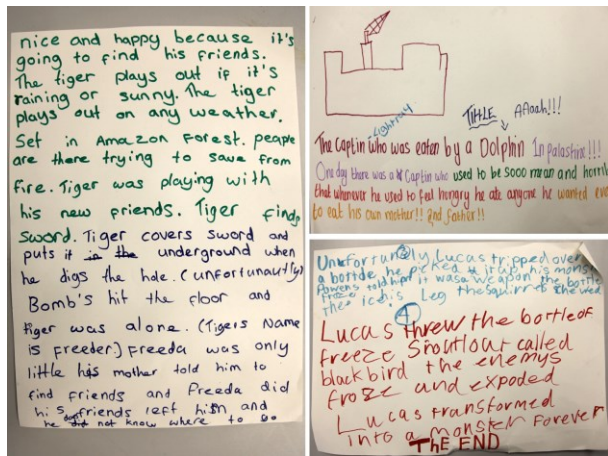 nice and happy because it's
going to find his friends.
The tiger plays out if it's
raining or sunny. The tiger
plays out on any weather.
Set in Amazon Forest. people
are there trying to save from
Fire. Tiger was playing with
his new friends. Tiger finds
Sword. Tiger covers sword and
puts it in the underground when
he digs the hole. (unfortunautly)
Bomb's hit the floor and
tiger was alone. (Tigers Name
is freeder.) Freeda was only
little his mother told him to
find friends and Freeda did
his friends left him and
he did not know where to go
TITTLE AAaah!!!
Lightray
The Captin who was eaten by a Dolphin In palastine!!!
One day there was a Captin who used to be sooo mean and horrible
that whenever he used to feel hungry he ate anyone he wanted even
to eat his own mother!! and father!!
Unfortunatly, Lucas tripped over
a bottle he picked it up his monster
Powers told him it was a weapon the bottle
freeze
the ice is Leg the squirrel
4
Lucas threw the bottle of
freeze Snoutlout called
blackbird the enemys
froze and expoded
Lucas transformed
into a monster Forever
ThE END